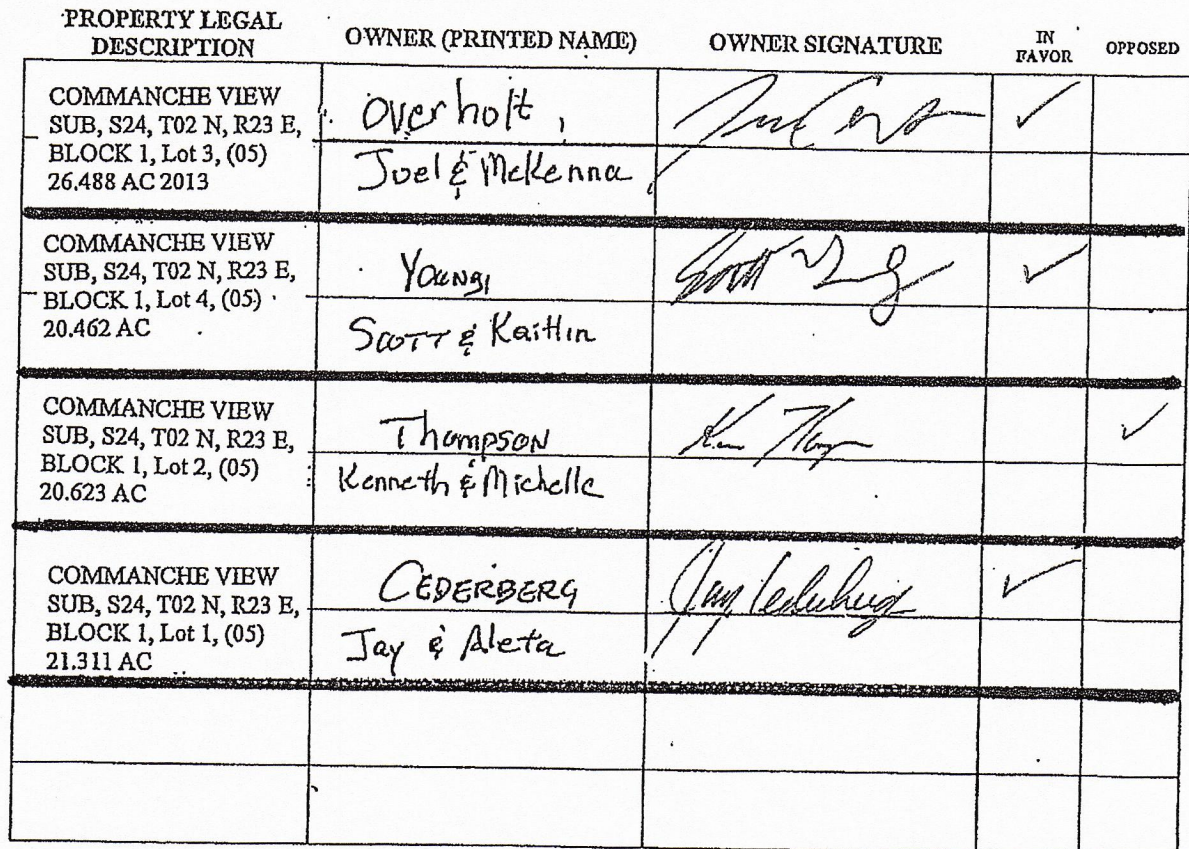 PROPERTY LEGAL DESCRIPTION OWNER (PRINTED NAME) OWNER SIGNATURE IN FAVOR OPPOSED
COMMANCHE VIEW
SUB, S24, T02 N, R23 E,
BLOCK 1, Lot 3, (05)
26.488 AC 2013
Overholt,
Joel & McKenna
✓
COMMANCHE VIEW
SUB, S24, T02 N, R23 E,
BLOCK 1, Lot 4, (05)
20.462 AC
Young,
Scott & Kaitlin
✓
COMMANCHE VIEW
SUB, S24, T02 N, R23 E,
BLOCK 1, Lot 2, (05)
20.623 AC
Thompson
Kenneth & Michelle
✓
COMMANCHE VIEW
SUB, S24, T02 N, R23 E,
BLOCK 1, Lot 1, (05)
21.311 AC
CEDERBERG
Jay & Aleta
Jay Cederberg
✓